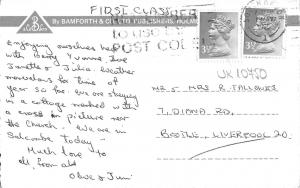 FIRST CLASS
By BAMFORTH & CO LTD. PUBLISHERS, HOLMF
TO USE
POST CODE
3½P
3½P
UK10450
Enjoying ourselves here
with Barry Yvonne, Jim
Janette & Julia. Weather
marvelous for time of
year so far. We are staying
in a cottage marked with
a cross on picture near
the Church. We are in
Salcombe today -
Much love to
all from all
Olive & Jim
MR & MRS. R. TALLOWER
7, DIANA RD,
BOOTLE, LIVERPOOL 20.